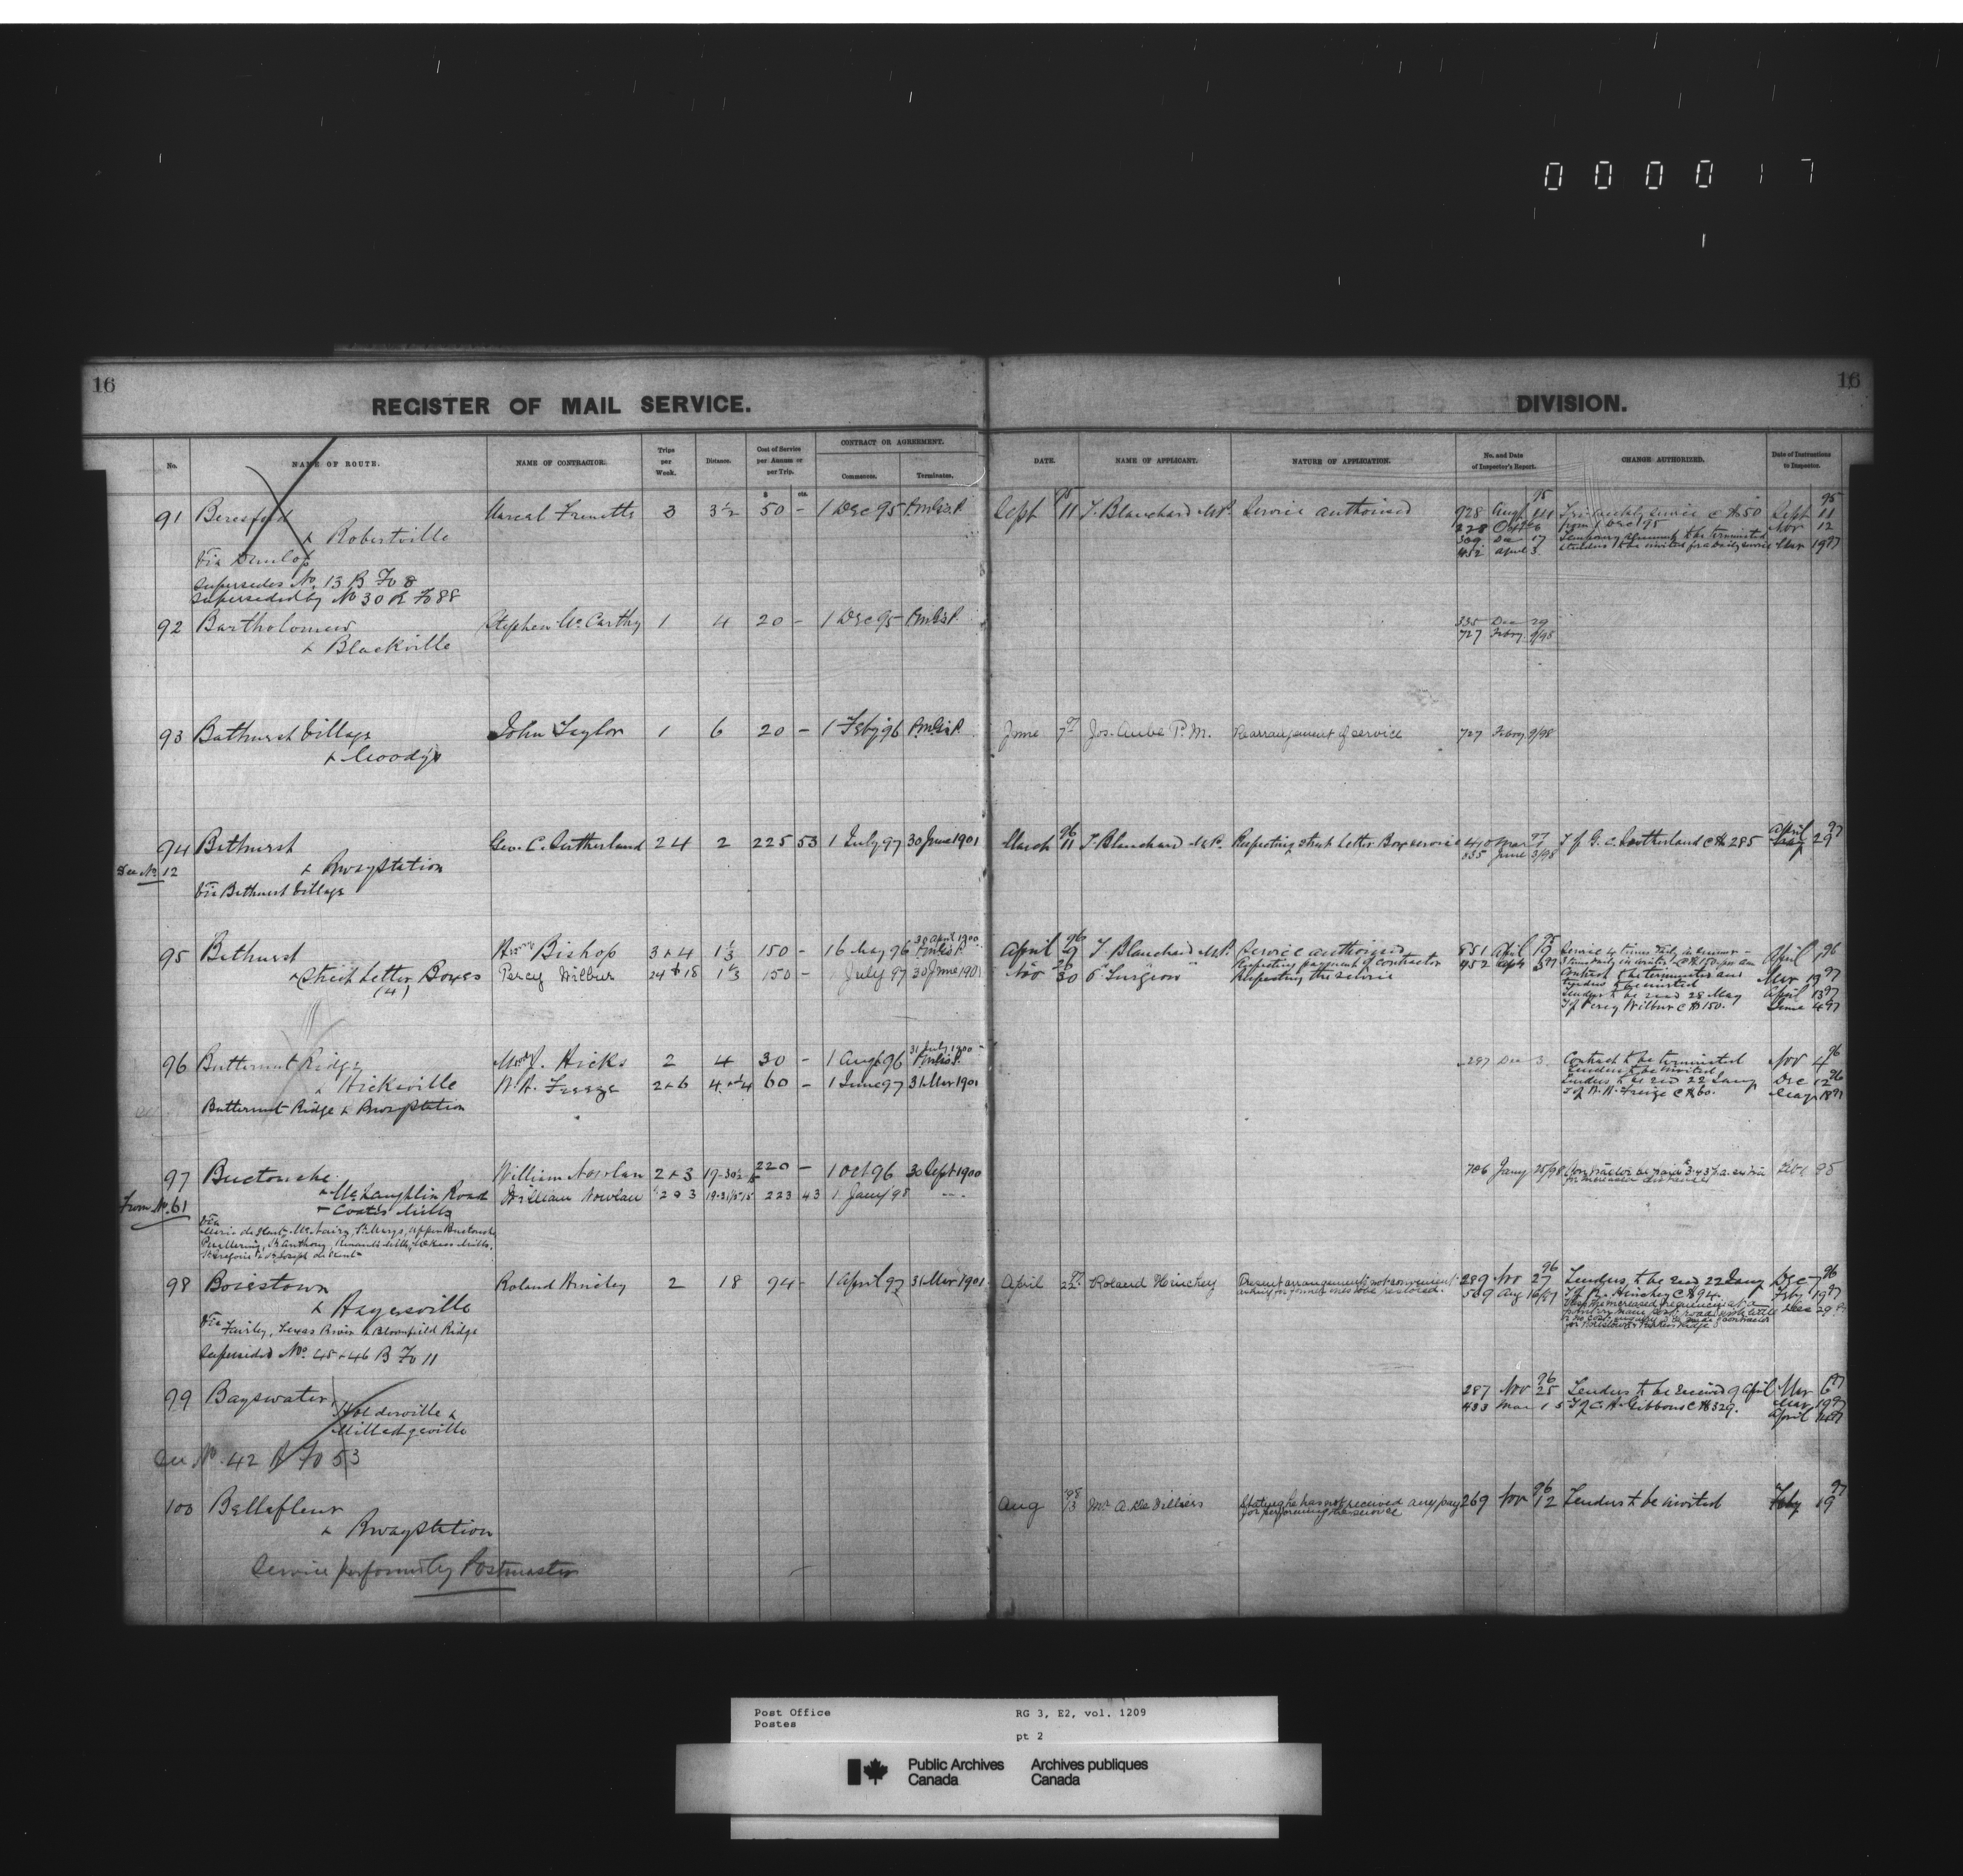 000017
16
REGISTER OF MAIL SERVICE.
No. NAME OF ROUTE. NAME OF CONTRACTOR. Trips per Week. Distance. Cost of Service per Annum or per Trip. $ cts. CONTRACT OR AGREEMENT. Commences. Terminates.
91 Beresford Marcal Frenette 3 3½ 50 - 1 Dec 95 PmGsP.
& Robertville
Via Dunlop
Supersedes No. 13 B Fo 8
Superseded by No 30 R Fo 88
92 Bartholomew Stephen McCarthy 1 4 20 - 1 Dec 95 PmGsP.
& Blackville
93 Bathurst Village John Taylor 1 6 20 - 1 Feby 96 PmGsP.
& Goodys
94 Bathurst Geo. C. Sutherland 24 2 225 53 1 July 97 30 June 1901
See No 12 & Rway Station
Via Bathurst Village
95 Bathurst Bishop 3 & 4 1⅓ 150 - 16 May 96 30 April 1900 PmGsP.
& Street Letter Boxes Percy Wilbur 24 & 18 1⅓ 150 - July 97 30 June 1901
(4)
96 Butternut Ridge Hicks 2 4 30 - 1 Aug 96 31 July 1900 PmGsP.
& Hicksville W. H. Freeze 2 & 6 4 & ¼ 60 - 1 June 97 31 Mar 1901
Butternut Ridge & Rway Station
97 Buctouche William Nowlan 2 & 3 220 - 1 Oct 96 30 Sept 1900
& McLaughlin Road William Nowlan 2 & 3 223 43 1 Jany 98
From No. 61 & Coates Mills
Via
98 Boiestown Roland Hinchey 2 18 94 - 1 April 97 31 Mar 1901
& Hayesville
Via Fairley, Texas River & Bloomfield Ridge
Superseded Nos. 45 & 46 B Fo 11
99 Bayswater,
Holderville &
Milledgeville
See No. 42 R Fo 53
100 Bellefleur
& Rway Station
Service performed by Postmaster
16
DIVISION.
DATE. NAME OF APPLICANT. NATURE OF APPLICATION. No. and Date of Inspector's Report. CHANGE AUTHORIZED. Date of Instructions to Inspector.
Sept 95 11 T. Blanchard M.P. Service authorised 928 Augt 95 Tri-weekly service c $50 Sept 95 11
228 Oct from 1 Dec 95 Nov 12
309 Dec 17 Temporary agreement to be terminated
452 April 3 & tenders to be invited for a daily service Mar 19 97
335 Dec 29
727 Febry 9/98
June 7 97 Jos. Aube P.M. Rearrangement of service 727 Febry 9/98
March 96 11 T. Blanchard M.P. Respecting street Letter Box service 440 Mar 97 T of G. C. Sutherland c $285 April 97 29
835 June 3/98
April 96 9 T Blanchard M.P. Service authorised 851 April 95 April 96
Respecting payment of contractor 452 April 3 97
Nov 30 Respecting the service Contract to be terminated and Mar 19 97
tenders to be invited
Tenders to be recd 28 May April 13 97
T of Percy Wilbur c $150. June 4 97
297 Dec 3. Contract to be terminated Nov 4 96
Tenders to be invited
Tenders to be recd 22 Jany Dec 12 96
T of W. H. Freize c $60.
706 Jany 25/98
April 97 22 Roland Hinchey Present arrangements not convenient 289 Nov 96 27 Tenders to be recd 22 Jany Dec 7 96
asking for former ones to be restored. 569 Aug 16/97 T of R. Hinchey c $94. Feby 19 97
287 Nov 96 25 Tenders to be received 9 April Mar 6 97
433 Mar 15 T of C. A. Gibbons c $329. Mar 19 97
April
Aug 98 13 Mr A. De Villiers Stating he has not received any pay 269 Nov 96 12 Tenders to be invited Feby 97 19
for performing the service
Post Office RG 3, E2, vol. 1209
Postes
pt 2
Public Archives Archives publiques
Canada Canada